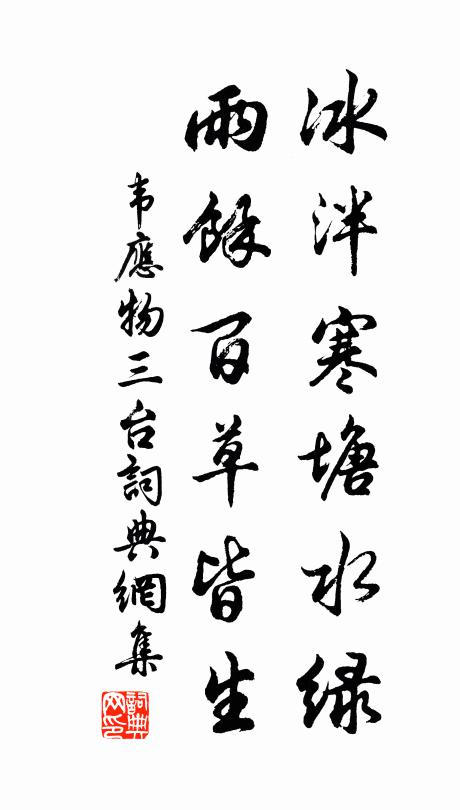 冰泮寒塘水绿
雨餘百草皆生
韦應物三台詞典網集
詞典网印